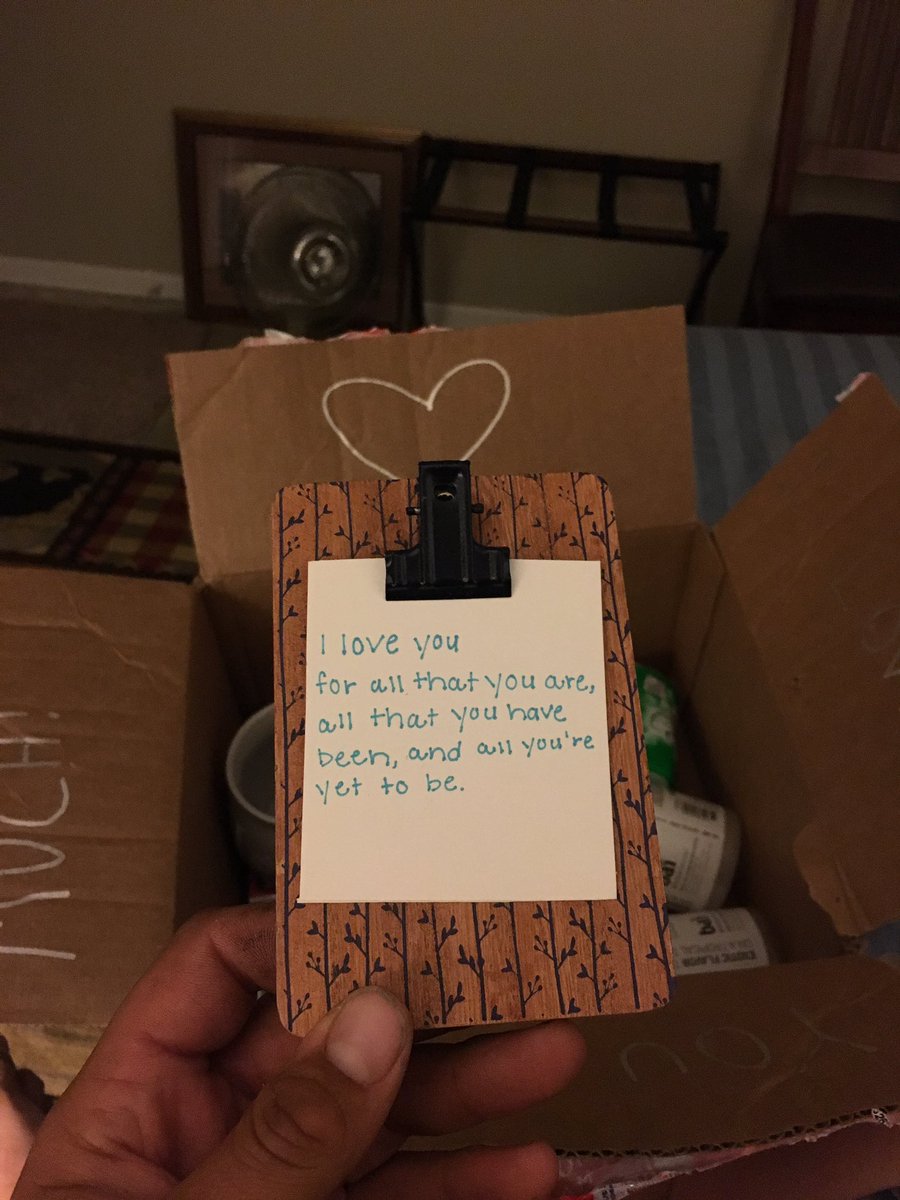 I love you
for all that you are,
all that you have
been, and all you're
yet to be.
MUCH!
YOU
EXOTIC FLAVOR